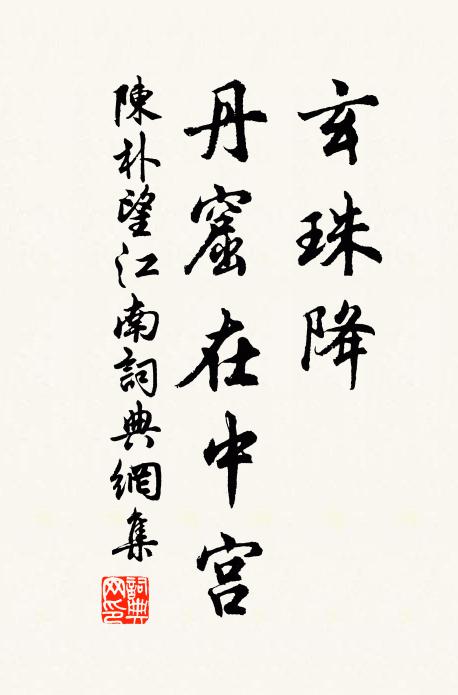 玄珠降
丹窟在中宫
陳朴望江南詞典網集
詞典网印